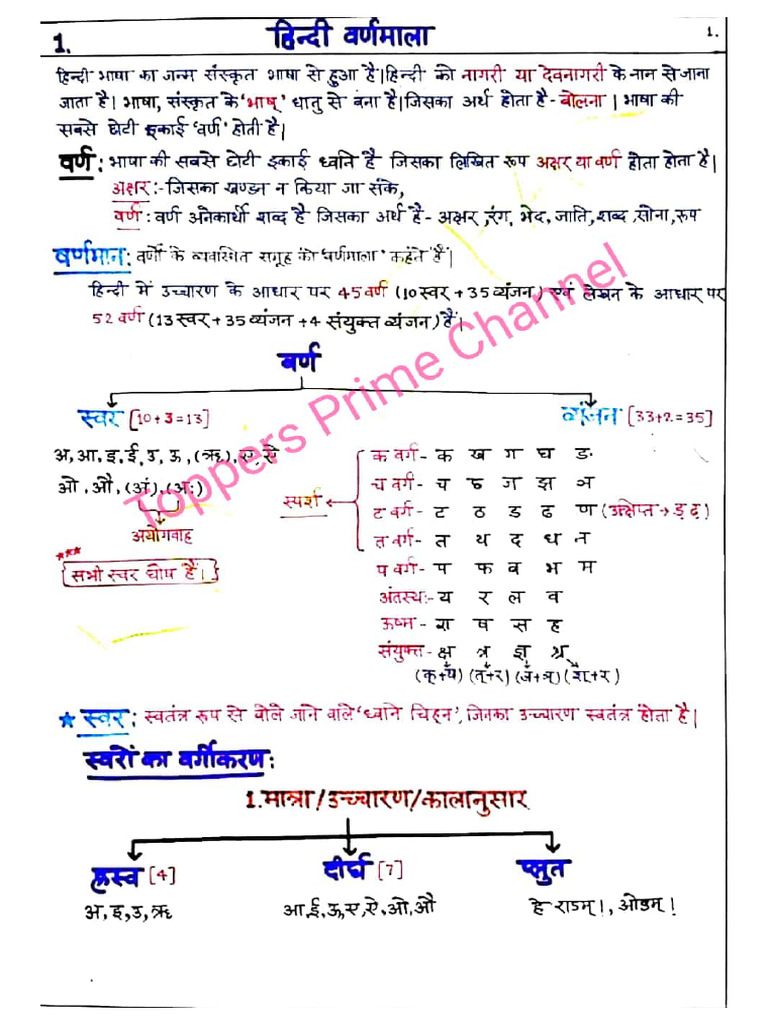 1. हिन्दी वर्णमाला 1.
हिन्दी भाषा का जन्म संस्कृत भाषा से हुआ है। हिन्दी को नागरी या देवनागरी के नान से जाना
जाता है। भाषा, संस्कृत के 'भाष्' धातु से बना है। जिसका अर्थ होता है - बोलना । भाषा की
सबसे छोटी इकाई 'वर्ण' होती है।
वर्ण : भाषा की सबसे छोटी इकाई ध्वनि है जिसका लिखित रूप अक्षर या वर्ण होता होता है।
अक्षर :- जिसका खण्डन न किया जा सके,
वर्ण : वर्ण अनेकार्थी शब्द है जिसका अर्थ है - अक्षर, रंग, भेद, जाति, शब्द, सोना, रूप
वर्णमान : वर्णों के व्यवस्थित समूह को 'वर्णमाला' कहते हैं।
हिन्दी में उच्चारण के आधार पर 45 वर्ण (10 स्वर + 35 व्यंजन) एवं लेखन के आधार पर
52 वर्ण (13 स्वर + 35 व्यंजन + 4 संयुक्त व्यंजन) है।
वर्ण
स्वर [10+3=13] व्यंजन [33+2=35]
अ, आ, इ, ई, उ, ऊ, (ऋ), ए, ऐ
ओ, औ, (अं), (अः)
अयोगवाह
*** सभी स्वर घोष हैं।
स्पर्श
क वर्ग - क ख ग घ ङ
च वर्ग - च छ ज झ ञ
ट वर्ग - ट ठ ड ढ ण (उत्क्षिप्त → ड़ ढ़)
त वर्ग - त थ द ध न
प वर्ग - प फ ब भ म
अंतस्थः - य र ल व
ऊष्म - श ष स ह
संयुक्त - क्ष त्र ज्ञ श्र
(क्+ष) (त्+र) (ज्+ञ) (श्+र)
* स्वर : स्वतंत्र रूप से बोले जाने वाले 'ध्वनि चिह्न', जिनका उच्चारण स्वतंत्र होता है।
स्वरों का वर्गीकरण :
1. मात्रा/उच्चारण/कालानुसार
ह्रस्व [4] दीर्घ [7] प्लुत
अ, इ, उ, ऋ आ, ई, ऊ, ए, ऐ, ओ, औ हे राऽम्!, ओऽम्!
Toppers Prime Channel